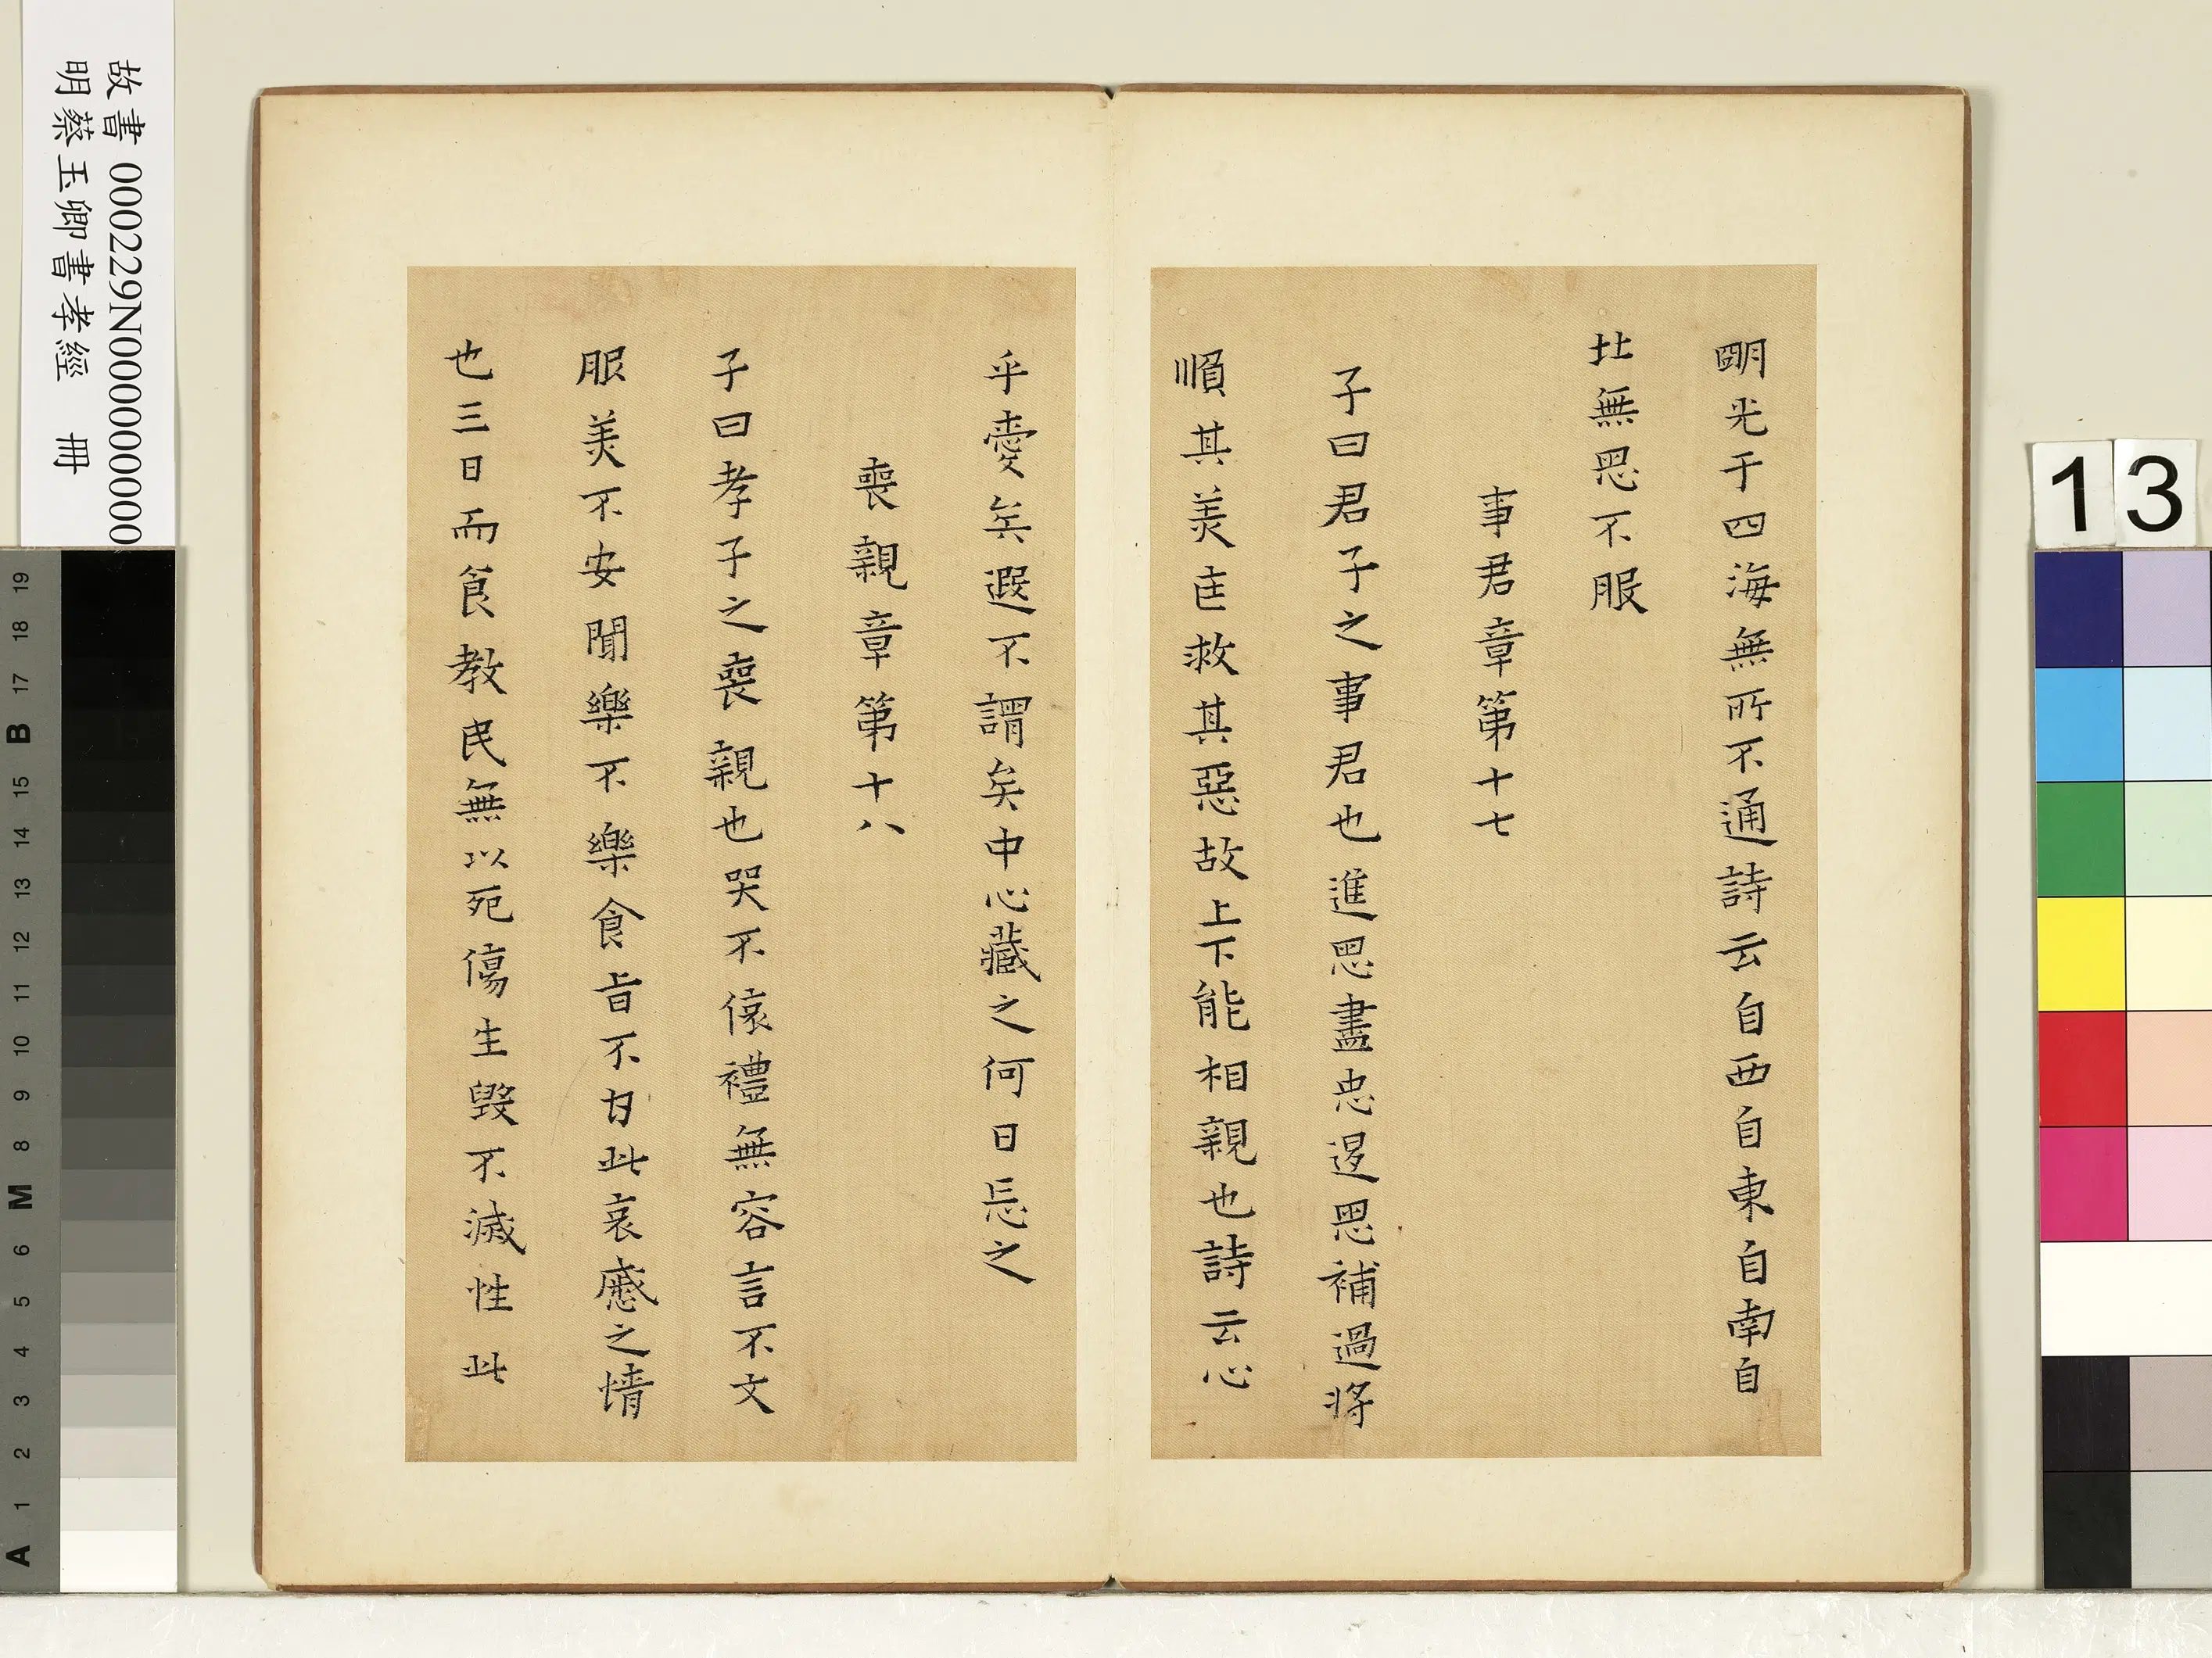 明光于四海無所不通詩云自西自東自南自
北無思不服
事君章第十七
子曰君子之事君也進思盡忠退思補過將
順其美匡救其惡故上下能相親也詩云心
乎愛矣遐不謂矣中心藏之何日忘之
喪親章第十八
子曰孝子之喪親也哭不偯禮無容言不文
服美不安聞樂不樂食旨不甘此哀慼之情
也三日而食教民無以死傷生毀不滅性此
故書 000229N000000000
明蔡玉卿書孝經 冊
13
19
18
17
B
15
14
13
12
11
10
9
8
M
6
5
4
3
2
1
A